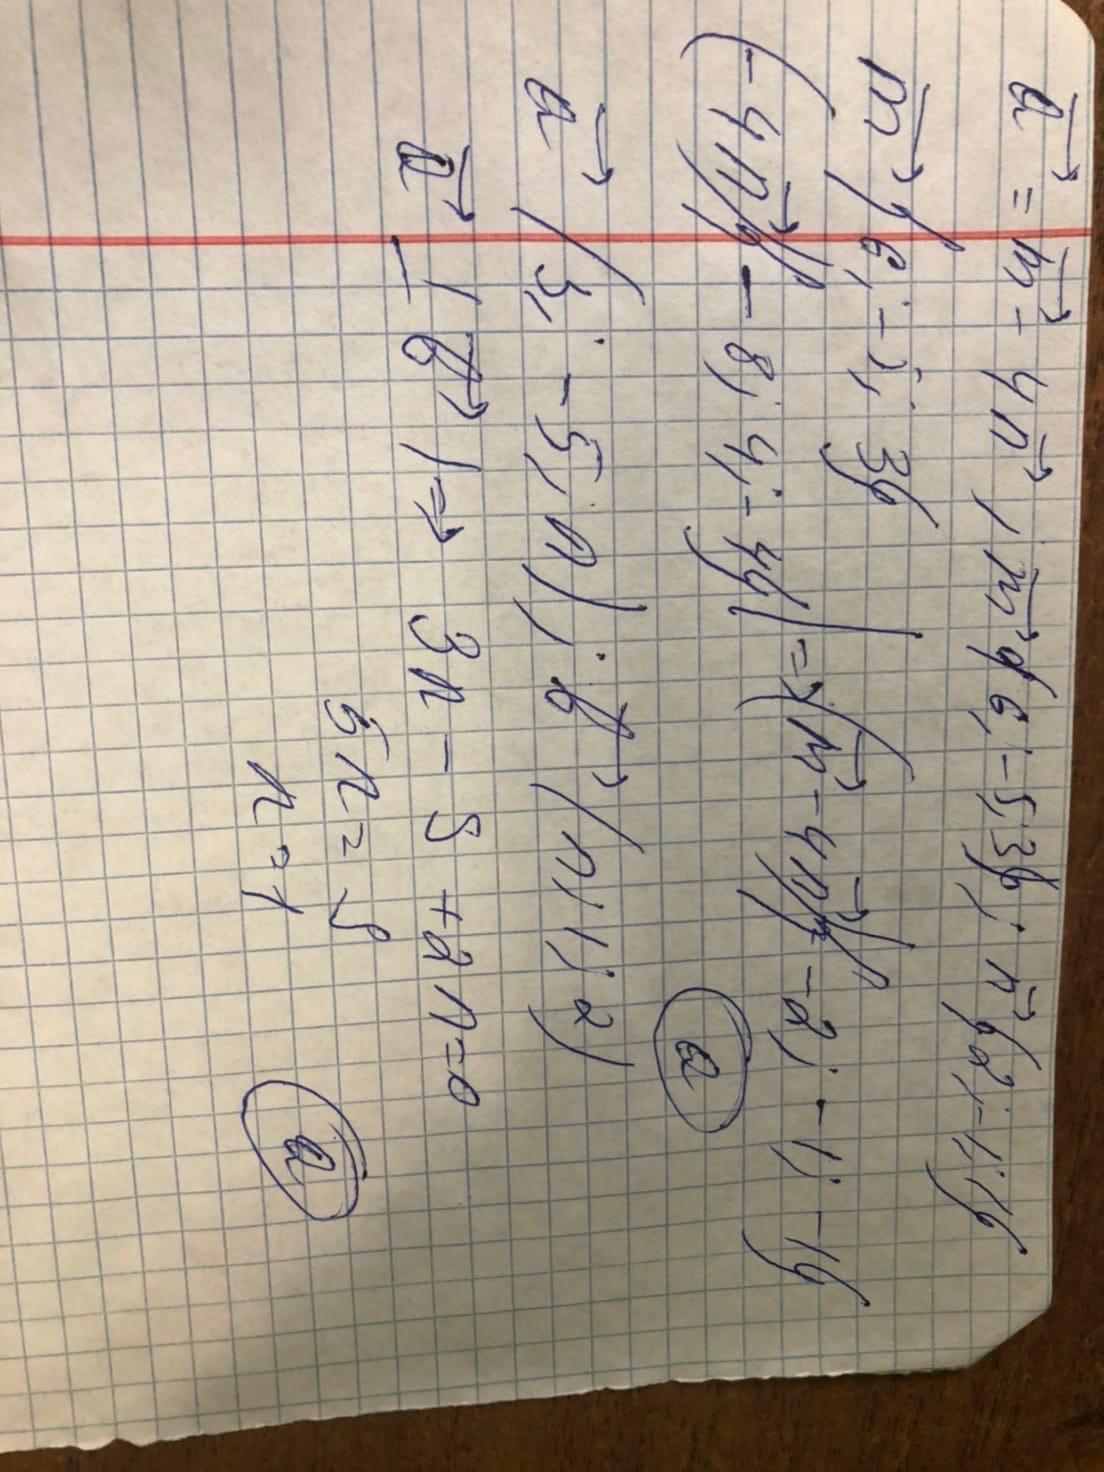 a⃗ = m⃗ - 4n⃗, m⃗{6; -5; 3}; n⃗{2; -1; 1}
m⃗{6; -5; 3}
(-4n⃗){-8; 4; -4} => (m⃗ - 4n⃗){-2; -1; -1}
a
a⃗(3; -5; n); b⃗(n; 1; 2)
a⃗ ⊥ b⃗ | => 3n - 5 + 2n = 0
5n = 5
n = 1
a